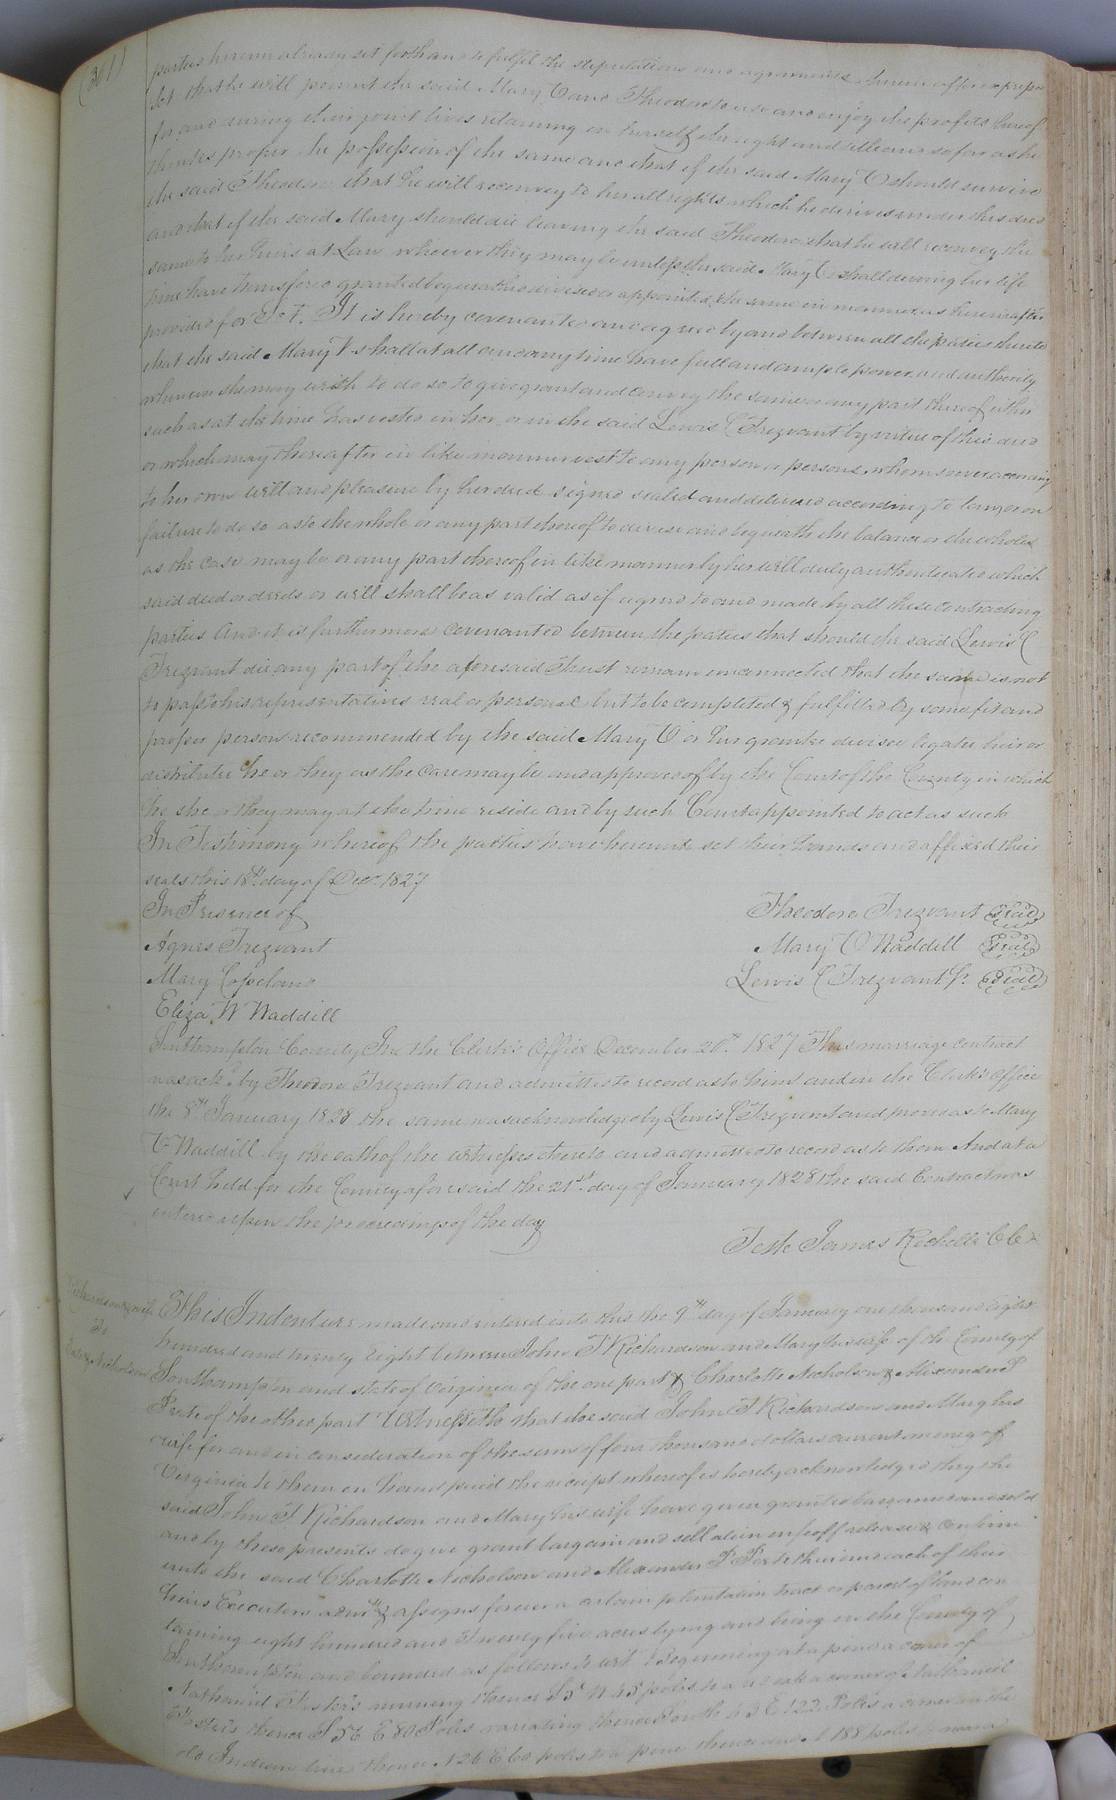 (361)
parties herein already set forth and to fulfil the stipulations and agreements herein after expressed
1st that he will permit the said Mary V and Theodore to use and enjoy the profits thereof
for and during their joint lives retaining in himself the right and title and so far as he
thinks proper the possession of the same and that if the said Mary V should survive
the said Theodore that he will reconvey to her all rights which he derives under this deed
and that if the said Mary should die leaving the said Theodore that he will reconvey the
same to her heirs at Law whoever they may be unless the said Mary V shall during her life
time have theretofore granted bequeathed devised or appointed the same in manner as hereinafter
provided for It is hereby covenanted and agreed by and between all the parties hereto
that the said Mary V shall at all and any time have full and ample power and authority
whenever she may wish to do so to give grant and convey the same or any part thereof either
such as at the time has vested in her or in the said Lewis C Trezvant by virtue of this deed
or which may thereafter in like manner vest to any person or persons whomsoever according
to her own will and pleasure by her deed signed sealed and delivered according to law or on
failure to do so as to the whole or any part thereof to devise and bequeath the balance or the whole
as the case may be or any part thereof in like manner by her will duly authenticated which
said deed or deeds or will shall be as valid as if agreed to and made by all these contracting
parties And it is furthermore covenanted between the parties that should the said Lewis C
Trezvant die any part of the aforesaid Trust remain unexecuted that the same is not
to pass to his representatives real or personal but to be completed & fulfilled by some fit and
proper person recommended by the said Mary V or her grantee devisee legatee heir or
distributee he or they as the case may be and approved of by the Court of the County in which
he she or they may at the time reside and by such Court appointed to act as such
In Testimony whereof the parties have hereunto set their hands and affixed their
seals this 18th day of Decr 1827
In Presence of
Theodore Trezvant Seal
Agnes Trezvant
Mary V Waddill Seal
Mary Copeland
Lewis C Trezvant Jr Seal
Eliza W Waddill
Southampton County In the Clerk's Office December 20th 1827 This marriage contract
was ackd by Theodore Trezvant and admitted to record as to him and in the Clerk's Office
the 8th January 1828 the same was acknowledged by Lewis C Trezvant and proved as to Mary
V Waddill by the oath of the witnesses thereto and admitted to record as to them And at a
Court held for the County aforesaid the 21st day of January 1828 the said Contract was
entered upon the proceedings of the day
Teste James Rochelle CC
Richardson & wife
To
Nicholson
This Indenture made and entered into this the 9th day of January one thousand Eight
hundred and twenty Eight between John T Richardson and Mary his wife of the County of
Southampton and state of Virginia of the one part & Charlotte Nicholson & Alexander P
Peete of the other part Witnesseth that the said John T Richardson and Mary his
wife for and in consideration of the sum of four thousand dollars current money of
Virginia to them in hand paid the receipt whereof is hereby acknowledged they the
said John T Richardson and Mary his wife have given granted bargained and sold
and by these presents do give grant bargain and sell alien enfeoff release & confirm
unto the said Charlotte Nicholson and Alexander P Peete their and each of their
heirs Executors admrs & assigns forever a certain plantation tract or parcel of land con
taining eight hundred and Twenty five acres lying and being in the County of
Southampton and bounded as follows to wit Beginning at a pine a corner of
Nathaniel Foster's running thence S 5 W 45 poles to a red oak a corner of Nathaniel
Foster's thence S 56 E 80 Poles variating thence South 43 E 122 Poles a corner in the
old Indian line thence N 26 E 60 poles to a pine thence 188 poles